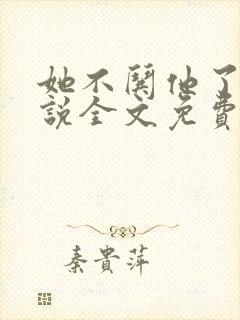 她不關他了
說全文免費
秦貴萍